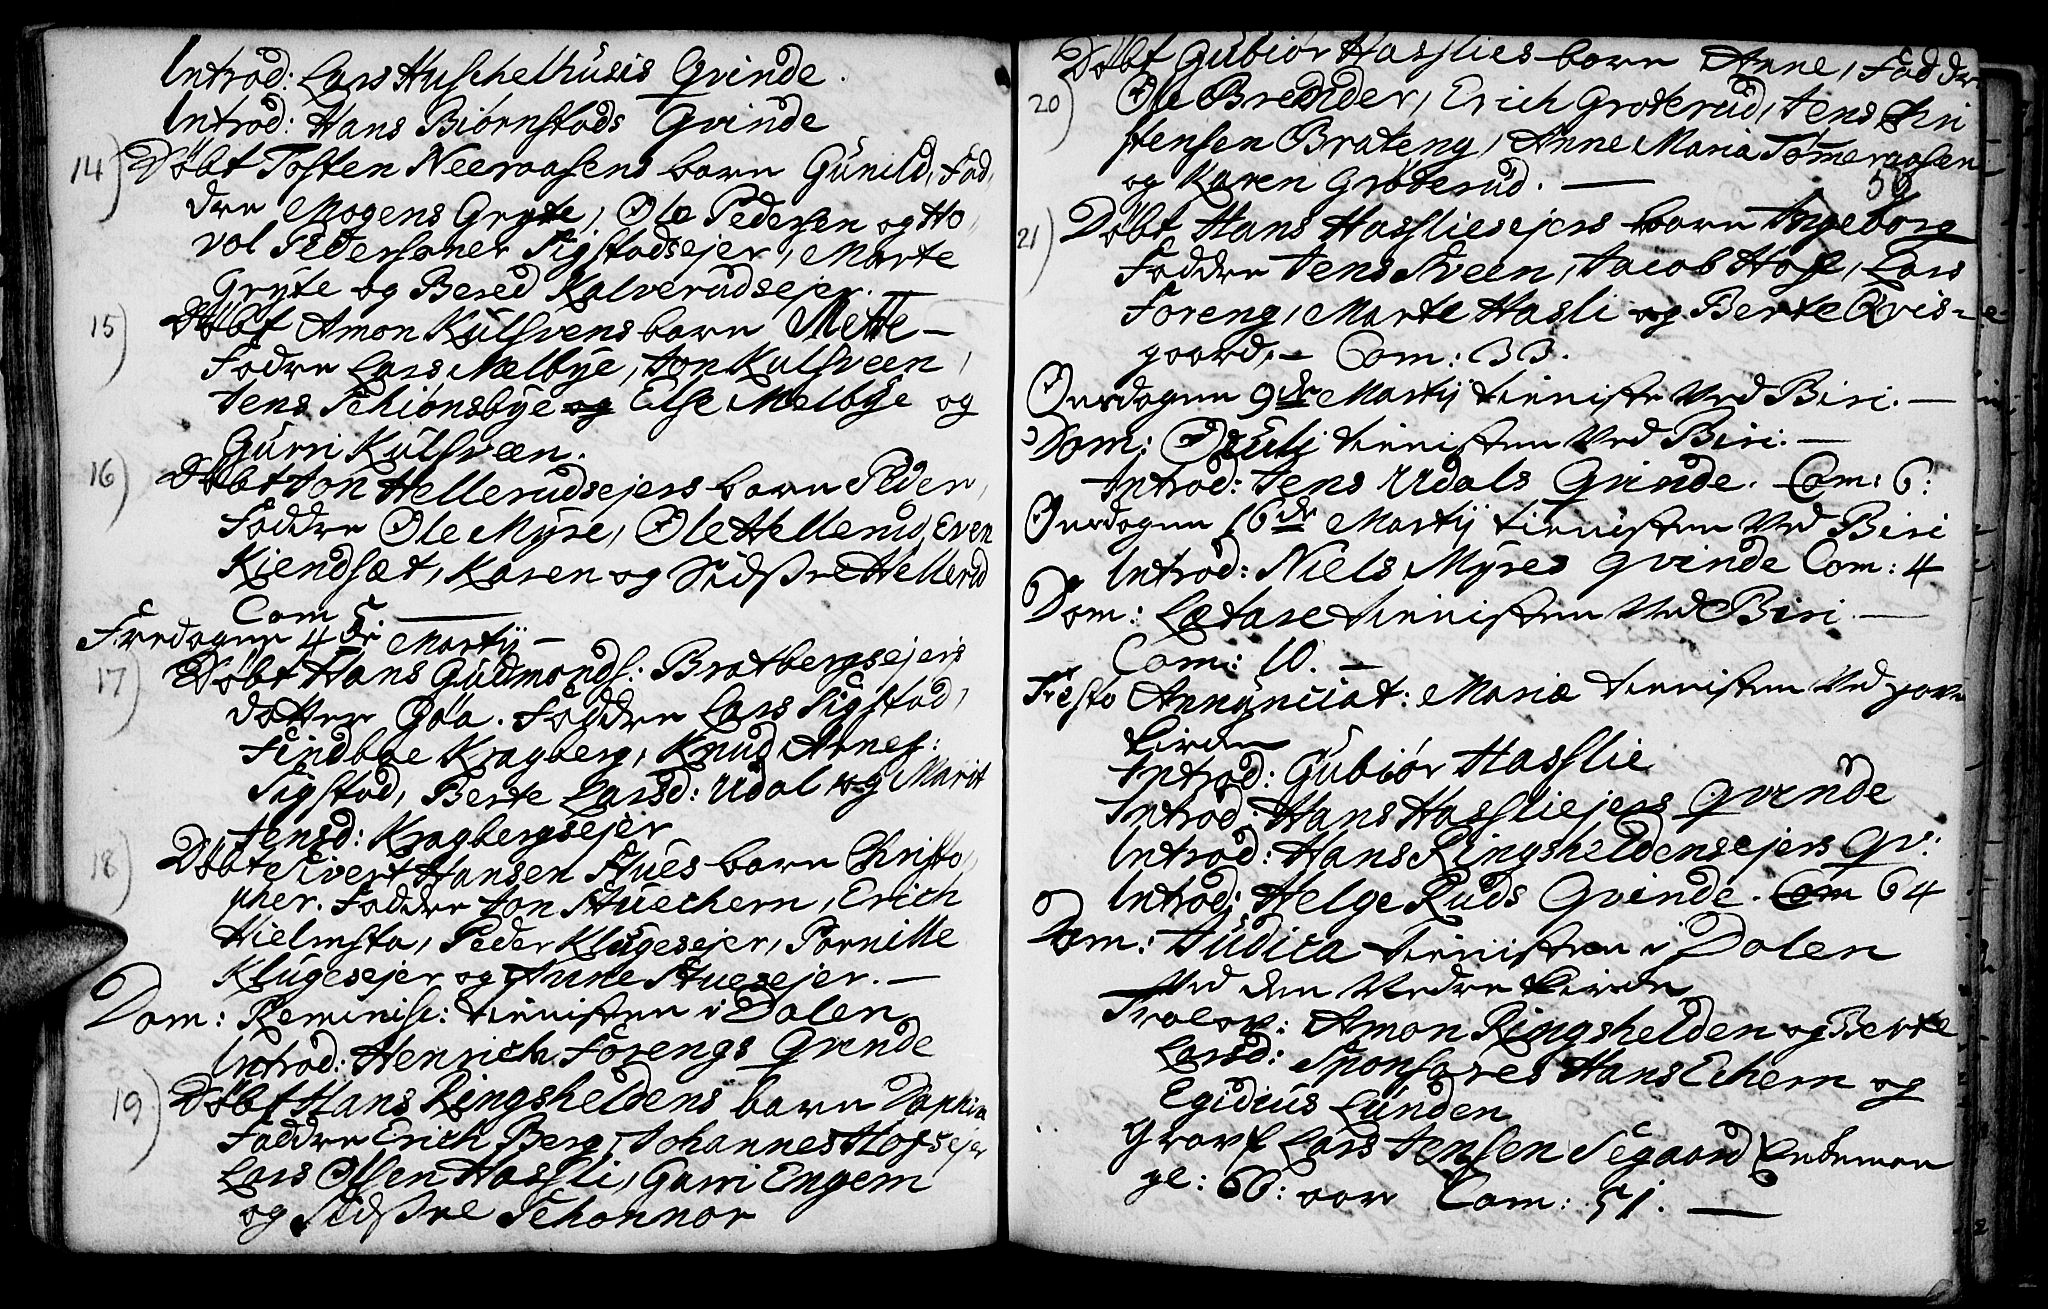 Introd: Lars Huschelhusis Qvinde.
Introd: Hans Biørnstads Qvinde
14) Døbt Tosten Neeraasens barn Gunild, Fad,
dre Mogens Gryte, Ole Pedersen og Ho,
vol Pedersøner Sigstadsejer, Marte
Gryte og Bered Kalverudsejer. —
15) Døbt Amon Kulsvens barn Mette —
Fadre Lars Mælbye, Jon Kulsveen,
Jens Schiønsbye og Else Melbye og
Gurri Kulsvæn.
16) Døbt Jon Hellerudsejers barn Peder,
Faddre Ole Myre, Ole Hellerud, Even
Kiendsæt, Karen og Sidsre Hellerud
Com 5 —
Fredagen 4de Martij —
17) Døbt Hans Gudmonds: Bratbergsejers
datter Goa. Faddre Lars Sigstad,
Findboe Kragberg, Knud Arnes:
Sigstad, Berte Larsd: Udal og Marit
Jensd: Kragbergsejer
18) Døbte Sivert Hansen Stues barn Christo,
pher. Faddre Jon Stuechern, Erich
Hielmsta, Peder Klugesejer, Pernille
Klugesejer og Anne Stuesejer. —
Dom: Reminisc: tienisten i Dalen
Introd: Henrich Forengs Qvinde
19) Døbt Hans Ringsheldens barn Daphin
Faddre Erich Berg, Johannes Hofsejer
Lars Olsen Hassli, Gurri Engem
og Sidsre Schonnor
Døbt Gubiør Hasslies barn Anne, Faddre
20) Ole Bredider, Erich Grøterud, Jens Chri
stensen Brateng, Anne Maria Tømeraasen
og Karen Grøterud. —
50
21) Døbt Hans Hassliesejers barn Ingeborg
Faddre Jens Sveen, Jacob Hofe, Lars
Foreng, Marte Hasli og Berte Qvis-
gaard, — Com: 33.
Onsdagen 9de Martij tienisten Ved Biri. —
Dom: Oculi tienisten Ved Biri. —
Introd: Jens Udals Qvinde. Com: 6:
Onsdagen 16de Martij tienisten Ved Biri
Introd: Niels Myres Qvinde Com: 4
Dom: Lætare tienisten Ved Biri. —
Com: 10. —
Festo Annunciat: Mariæ tienisten Ved
kirke
Introd: Gubiør Hasslie
Introd: Hans Hassliejers Qvinde
Introd: Hans Ringsheldensejers Qv:
Introd: Helge Ruds Qvinde. Com 64
Dom: Judica tienisten i Dalen
Ved den Nedre kirke
Trolov: Amon Ringshelden og Berte
Larsd: Sponsores Hans Echern og
Egidius Lunden
Gravf Lars Jensen Segaard
gl: 60: aar Com: 51. —